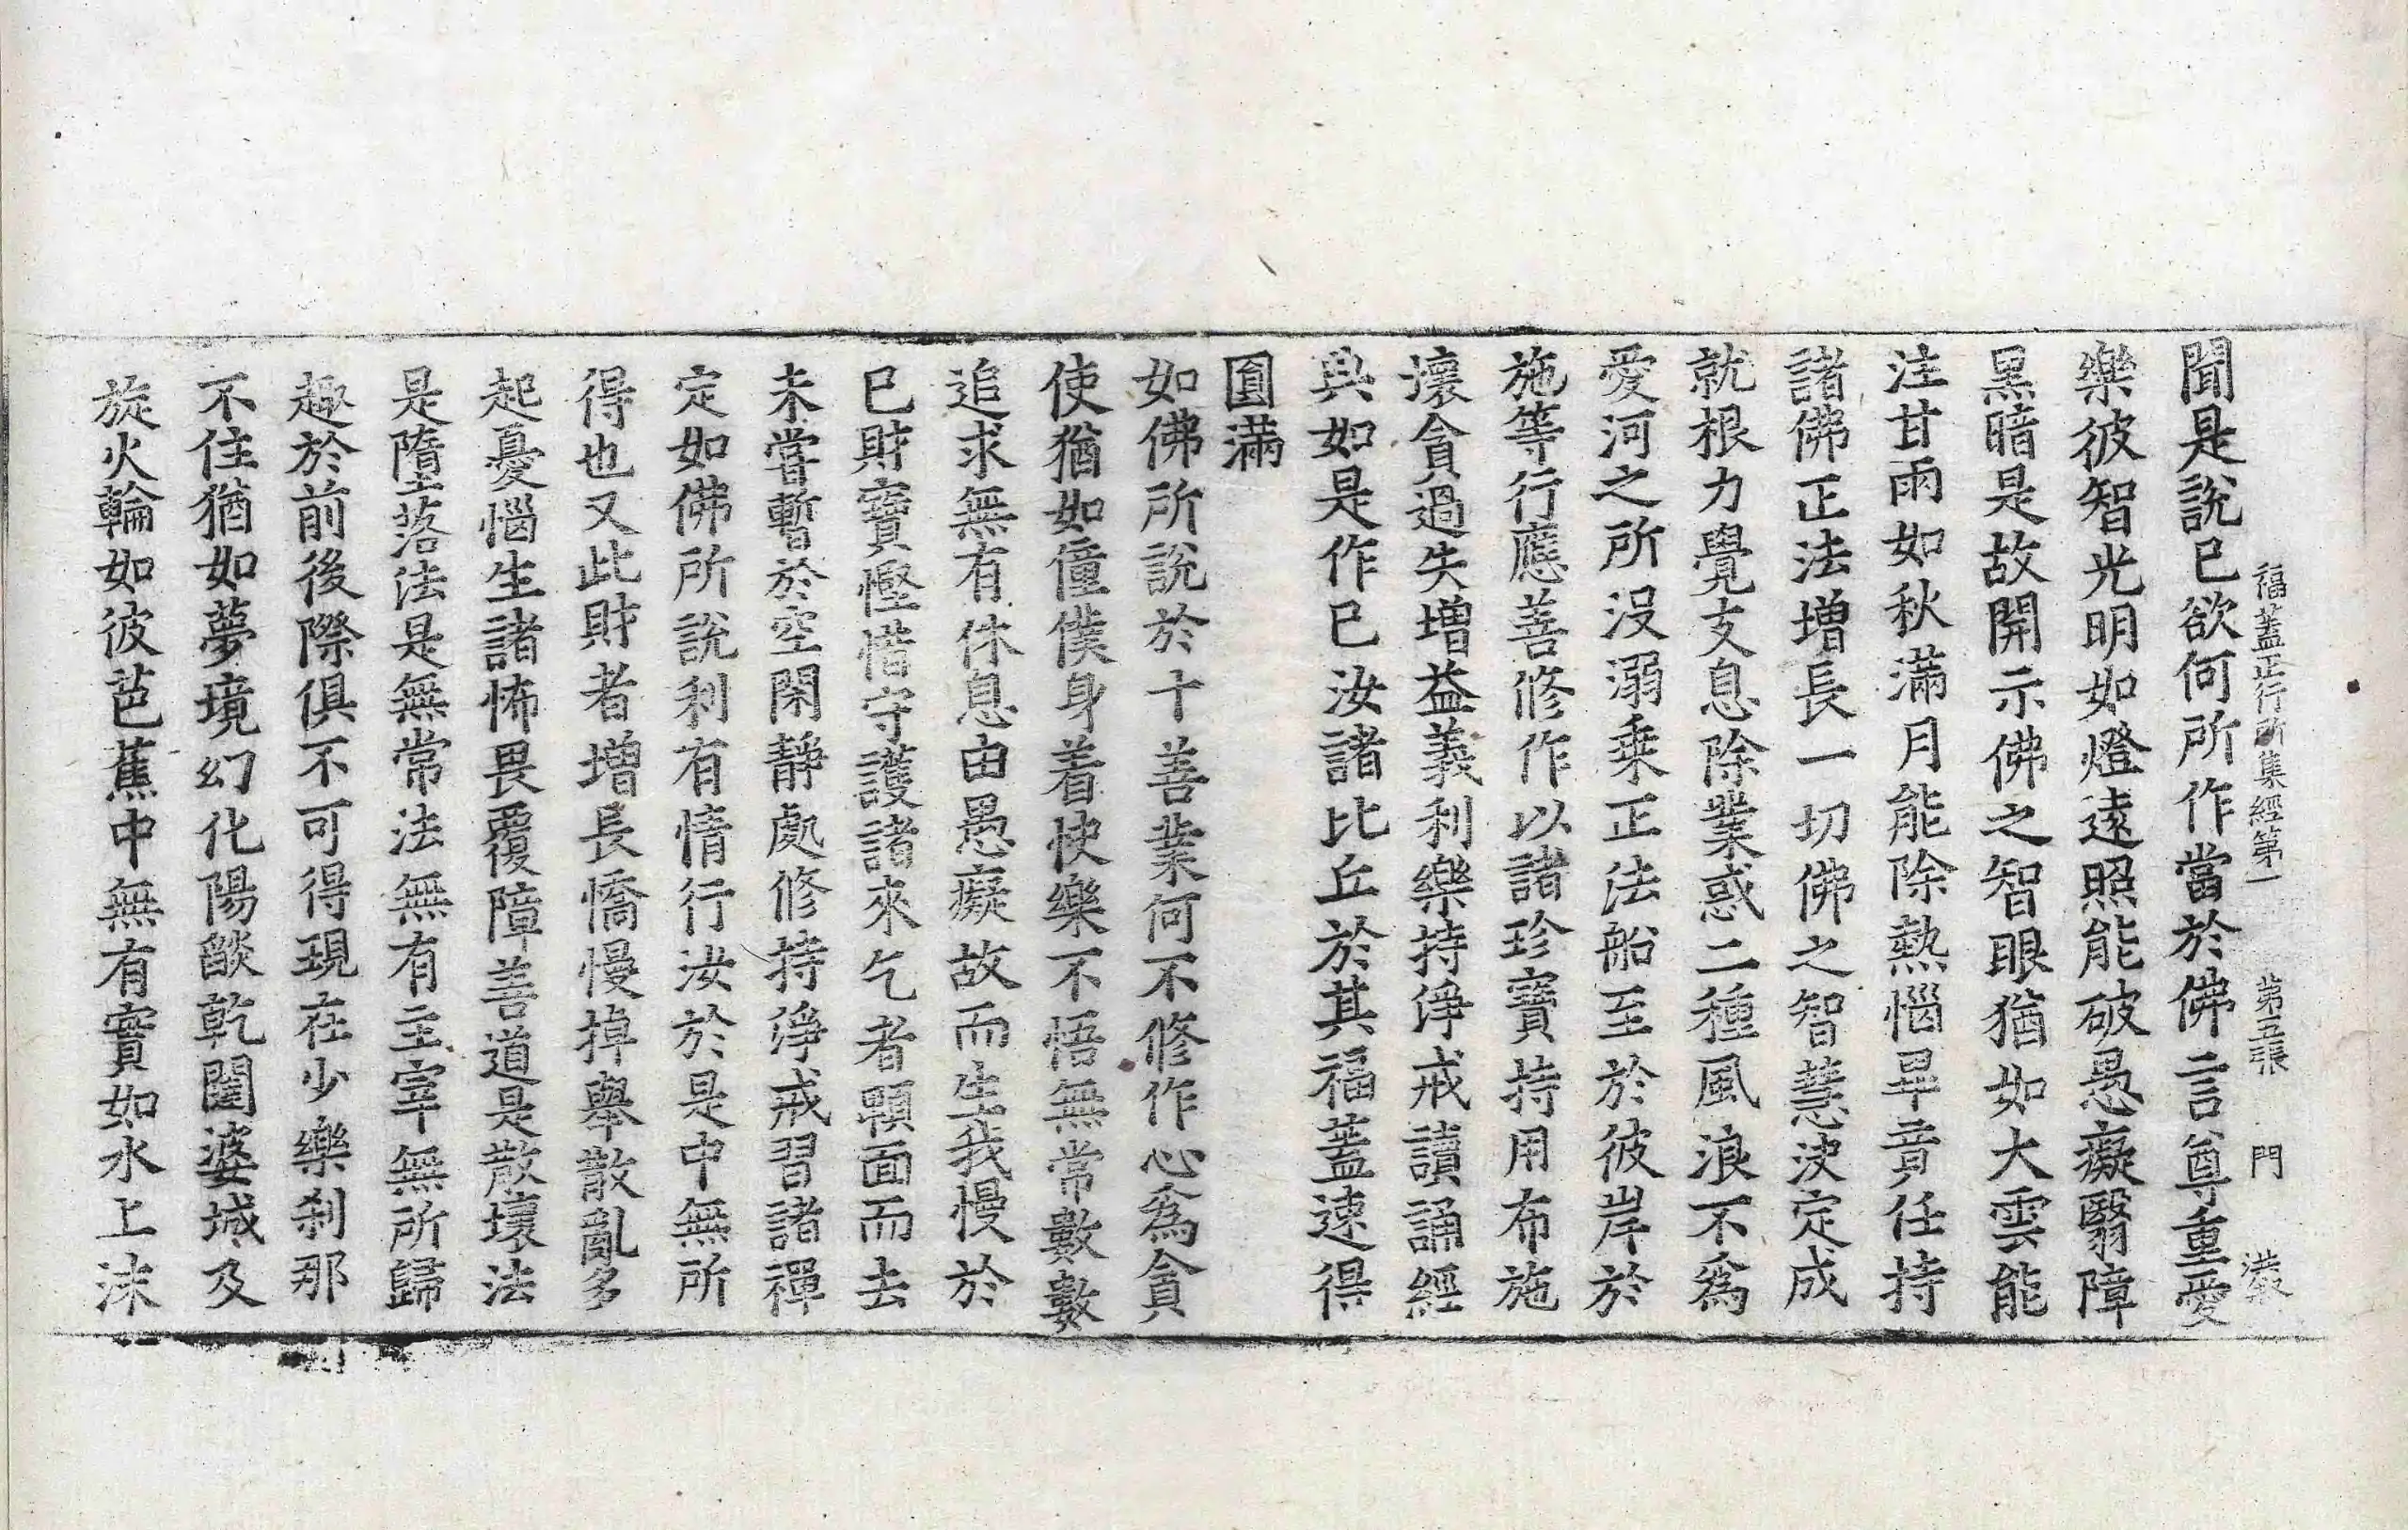 福蓋正行所集經第一 第五張 門
聞是說已欲何所作當於佛言尊重愛
樂彼智光明如燈遠照能破愚癡翳障
黑暗是故開示佛之智眼猶如大雲能
注甘雨如秋滿月能除熱惱畢竟任持
諸佛正法增長一切佛之智慧決定成
就根力覺支息除業惑二種風浪不爲
愛河之所沒溺乘正法船至於彼岸於
施等行應善修作以諸珍寶持用布施
壞貪過失增益義利樂持淨戒讀誦經
典如是作已汝諸比丘於其福蓋速得
圓滿
如佛所說於十善業何不修作心爲貪
使猶如僮僕身着快樂不悟無常數數
追求無有休息由愚癡故而生我慢於
已財寶慳惜守護諸來乞者顰面而去
未嘗暫於空閑靜處修持淨戒習諸禪
定如佛所說利有情行汝於是中無所
得也又此財者增長憍慢掉舉散亂多
起憂惱生諸怖畏覆障善道是散壞法
是墮落法是無常法無有主宰無所歸
趣於前後際俱不可得現在少樂剎那
不住猶如夢境幻化陽燄乾闥婆城及
旋火輪如彼芭蕉中無有實如水上沫